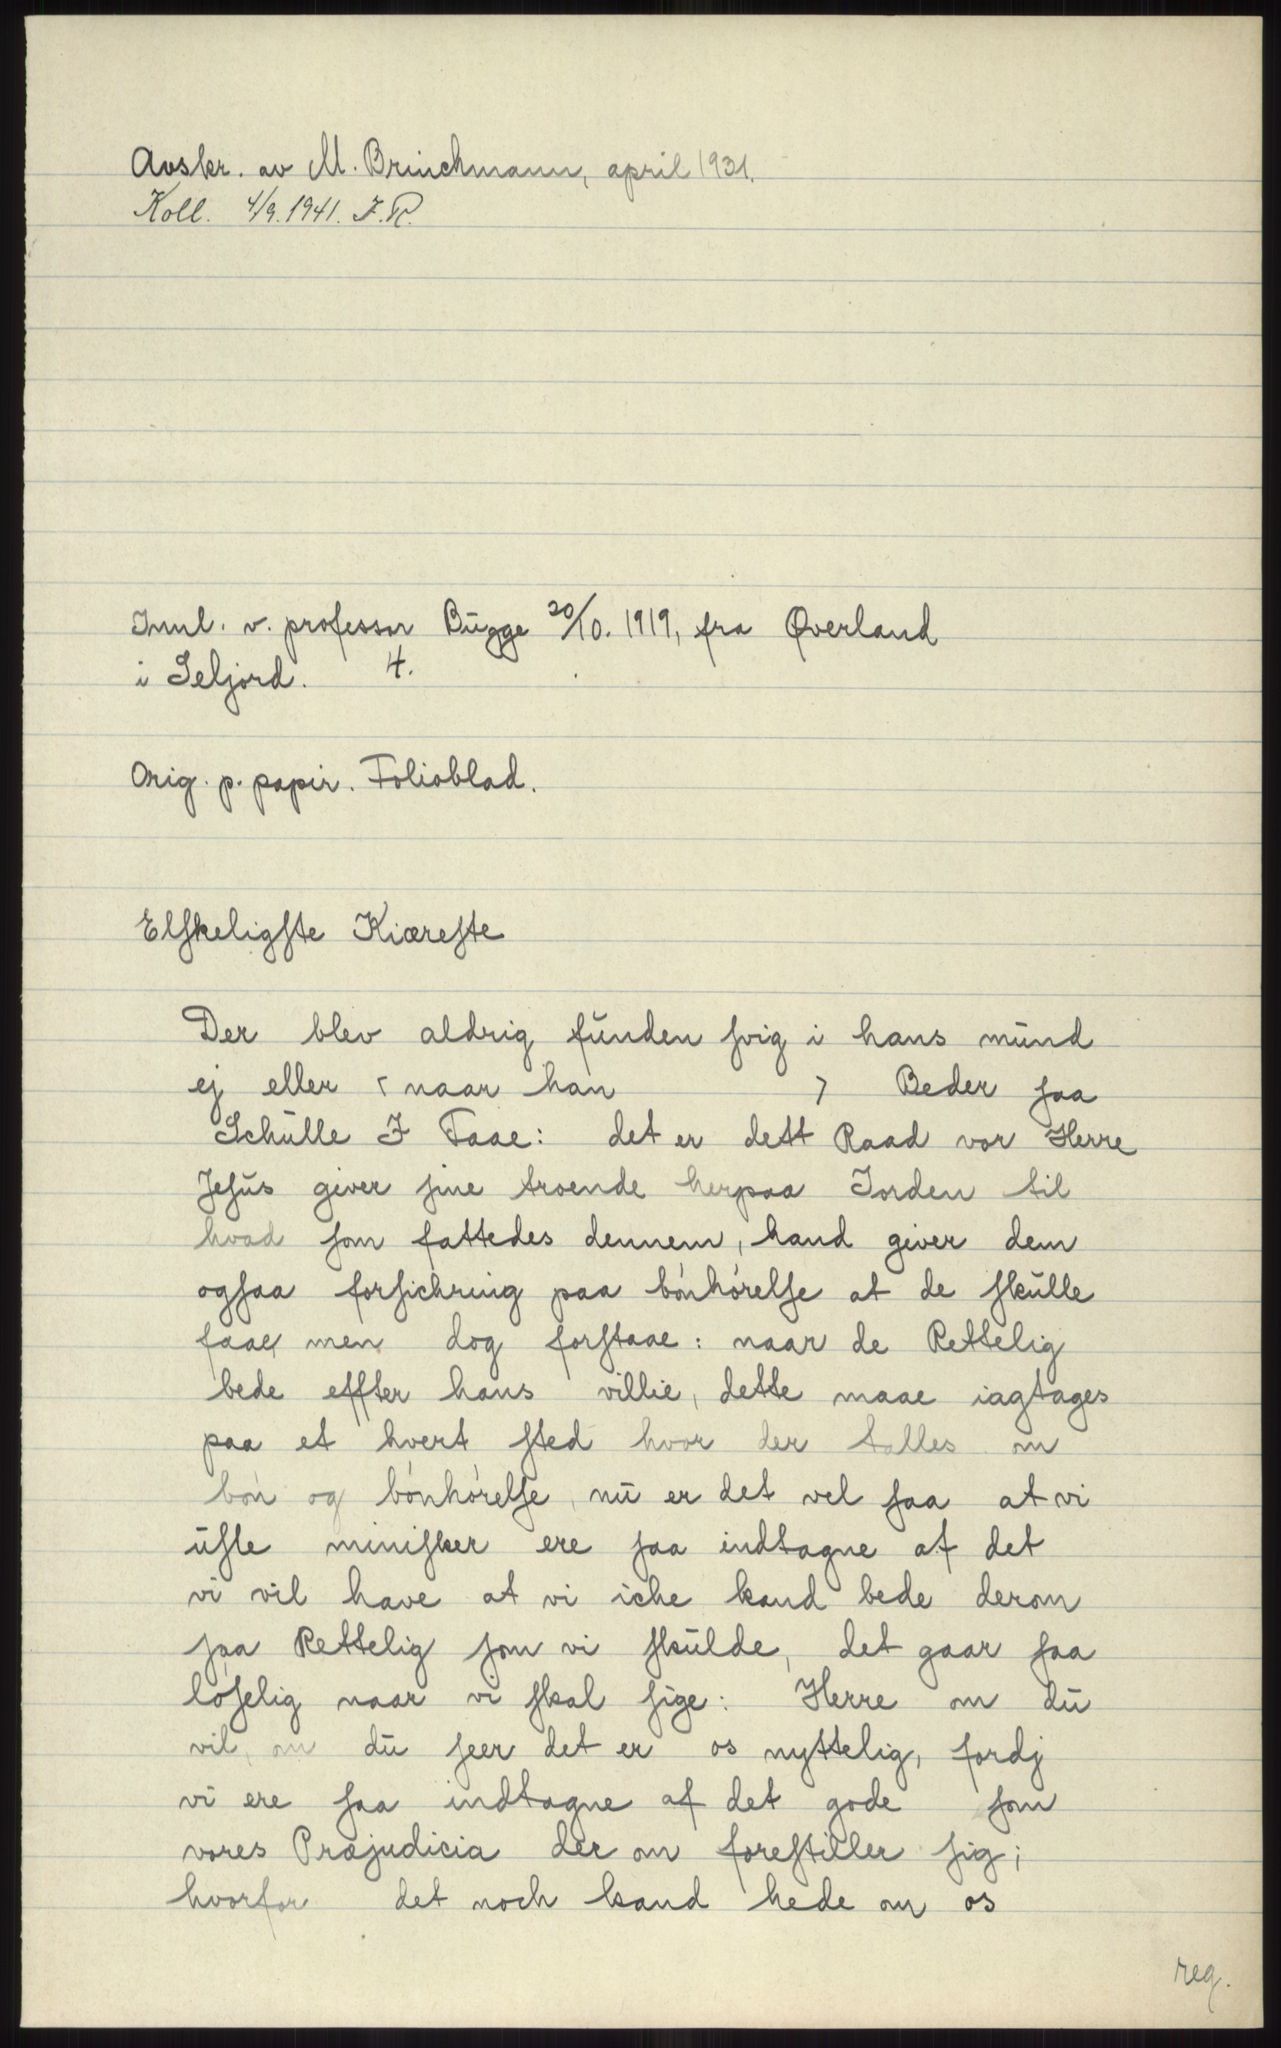 Avskr. av M. Brinchmann, april 1931.
Koll. 4/9. 1941. F.R.
Innl. v. professor Bugge 20/10. 1919, fra Øverland
i Seljord. 4.
Orig. p. papir. Folioblad.
Elskeligste Kiæreste
Der blev aldrig funden svig i hans mund
ej eller < naar han > Beder saa
Schulle I Faae: det er dett Raad vor Herre
Jesus giver sine troende herpaa Jorden til
hvad som fattedes dennem, hand giver dem
ogsaa forsichring paa bónhórelse at de skulle
faae, men dog forstaae: naar de Rettelig
bede effter hans villie, dette maae iagtages
paa et hvert sted hvor der talles om
bón og bónhórelse, nu er det vel saa at vi
usle minisker ere saa indtagne af det
vi vil have at vi iche kand bede derom
saa Rettelig som vi skulde, det gaar saa
lóselig naar vi skal sige: Herre om du
vil, om du seer det er os nyttelig, fordj
vi ere saa indtagne af det gode som
vores Præjudicia der om forestiller sig;
hvorfor det noch kand hede om os
reg.